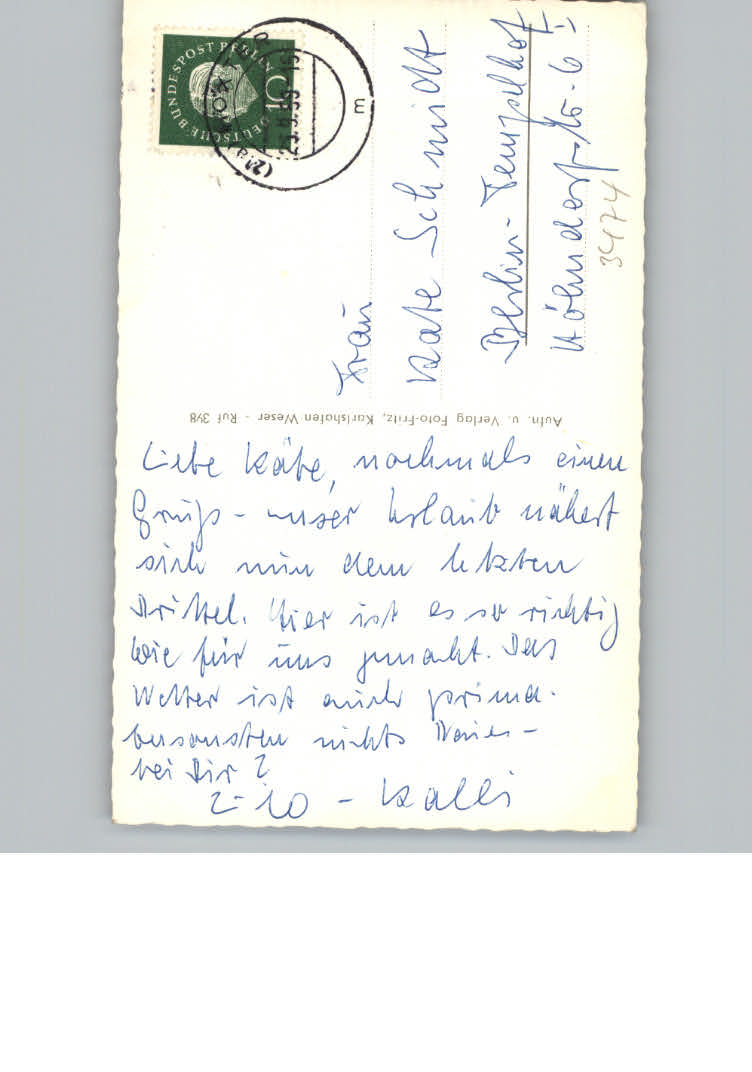 DEUTSCHE BUNDESPOST BERLIN
10
m
Frau
Käte Schmidt
Berlin-Tempelhof
3474
Aufn. u. Verlag Foto-Fritz, Karlshafen Weser - Ruf 398
Liebe Käte, nochmals einen
Gruß - unser Urlaub nähert
sich nun dem letzten
Drittel. Hier ist es so richtig
wie für uns gemacht. Das
Wetter ist auch prima.
Ansonsten nichts Neues -
bei Dir?
Kalli